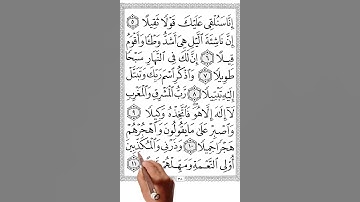 إِنَّا سَنُلْقِى عَلَيْكَ قَوْلًا ثَقِيلًا ٥
إِنَّ نَاشِئَةَ ٱلَّيْلِ هِىَ أَشَدُّ وَطْـًٔا وَأَقْوَمُ
قِيلًا ٦ إِنَّ لَكَ فِى ٱلنَّهَارِ سَبْحًا
طَوِيلًا ٧ وَٱذْكُرِ ٱسْمَ رَبِّكَ وَتَبَتَّلْ
إِلَيْهِ تَبْتِيلًا ٨ رَّبُّ ٱلْمَشْرِقِ وَٱلْمَغْرِبِ
لَآ إِلَٰهَ إِلَّا هُوَ فَٱتَّخِذْهُ وَكِيلًا ٩
وَٱصْبِرْ عَلَىٰ مَا يَقُولُونَ وَٱهْجُرْهُمْ
هَجْرًا جَمِيلًا ١٠ وَذَرْنِى وَٱلْمُكَذِّبِينَ
أُو۟لِى ٱلنَّعْمَةِ وَمَهِّلْهُمْ ١١